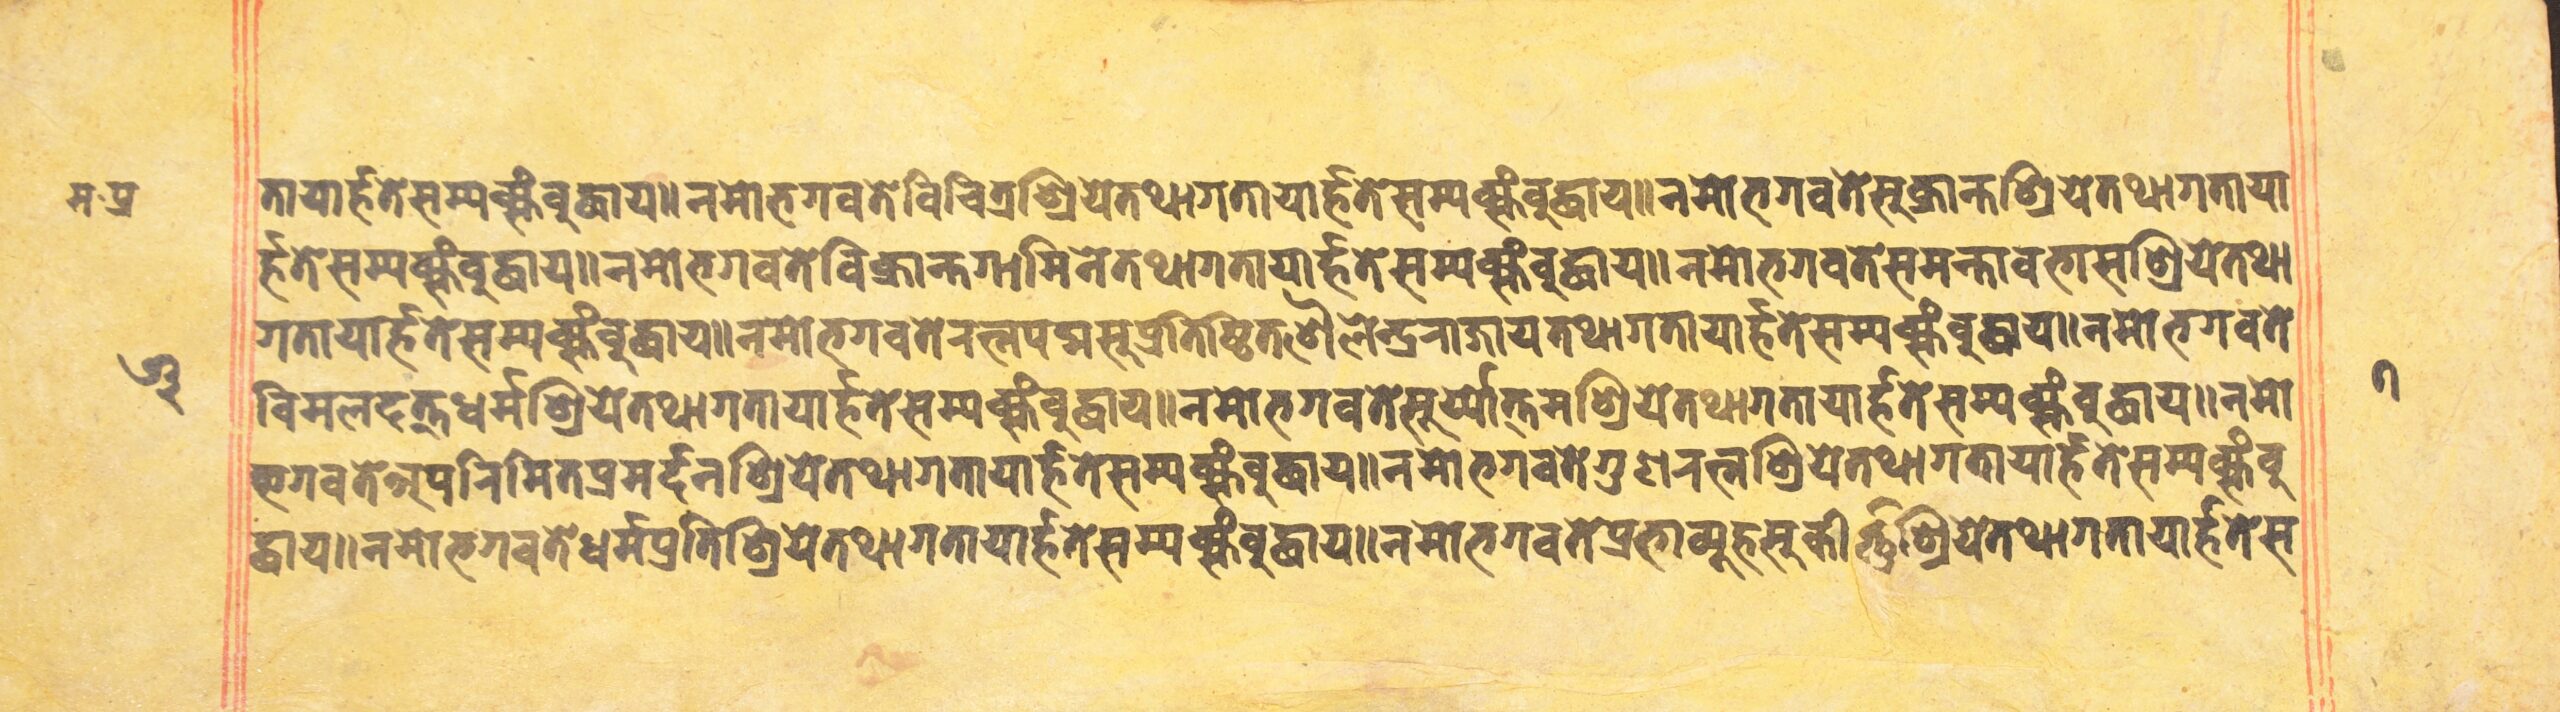 म॰प्र
तायार्हते सम्यक्संबुद्धाय॥ नमो भगवते विचित्रश्रिये तथागतायार्हते सम्यक्संबुद्धाय॥ नमो भगवते सुक्रान्तश्रिये तथागताया
र्हते सम्यक्संबुद्धाय॥ नमो भगवते विक्रान्तगामिने तथागतायार्हते सम्यक्संबुद्धाय॥ नमो भगवते समन्तावभासश्रिये तथा
गतायार्हते सम्यक्संबुद्धाय॥ नमो भगवते रत्नपद्मसुप्रतिष्ठितशैलेन्द्रराजाय तथागतायार्हते सम्यक्संबुद्धाय॥ नमो भगवते
विमलदत्तधर्मश्रिये तथागतायार्हते सम्यक्संबुद्धाय॥ नमो भगवते सूर्य्योत्तमश्रिये तथागतायार्हते सम्यक्संबुद्धाय॥ नमो
भगवते अपरिमितप्रमर्दनश्रिये तथागतायार्हते सम्यक्संबुद्धाय॥ नमो भगवते गुणरत्नश्रिये तथागतायार्हते सम्यक्संबु
द्धाय॥ नमो भगवते धर्मप्रतिश्रिये तथागतायार्हते सम्यक्संबुद्धाय॥ नमो भगवते प्रभाव्यूहसुकीर्तुश्रिये तथागतायार्हते स